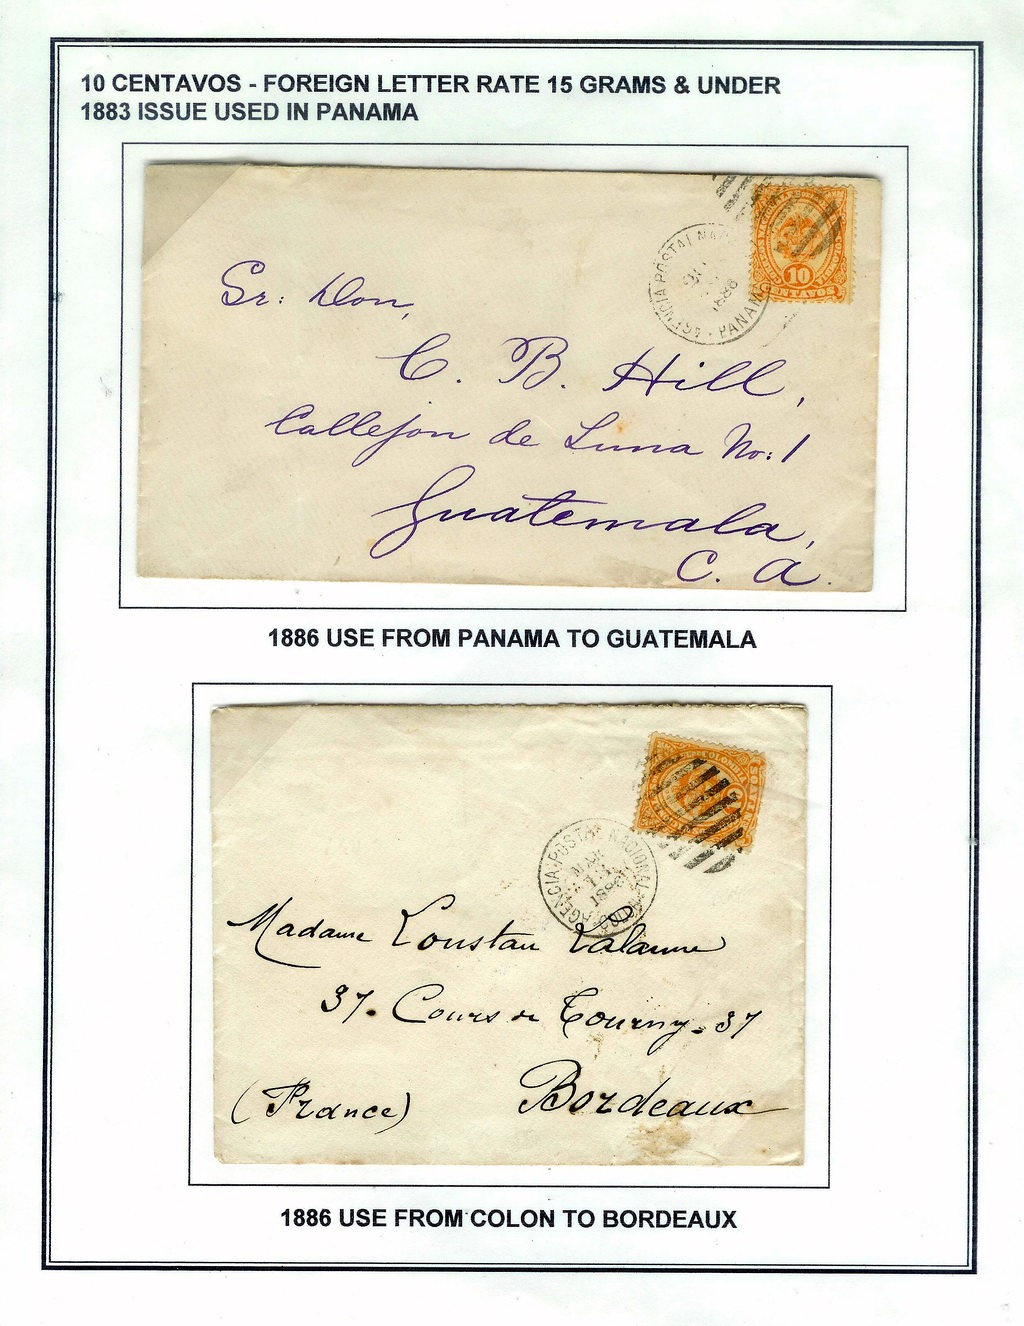 10 CENTAVOS - FOREIGN LETTER RATE 15 GRAMS & UNDER
1883 ISSUE USED IN PANAMA
AGENCIA POSTAL
1886
PANAMA
10
CENTAVOS
Sr: Don,
C. B. Hill,
Callejon de Luna No: 1
Guatemala,
C. A.
1886 USE FROM PANAMA TO GUATEMALA
COLOMBIA
AGENCIA POSTAL NACIONAL
MAR
1886
Madame Loustau Lalanne
37. Cours de Tourny. 37
(France) Bordeaux
1886 USE FROM COLON TO BORDEAUX